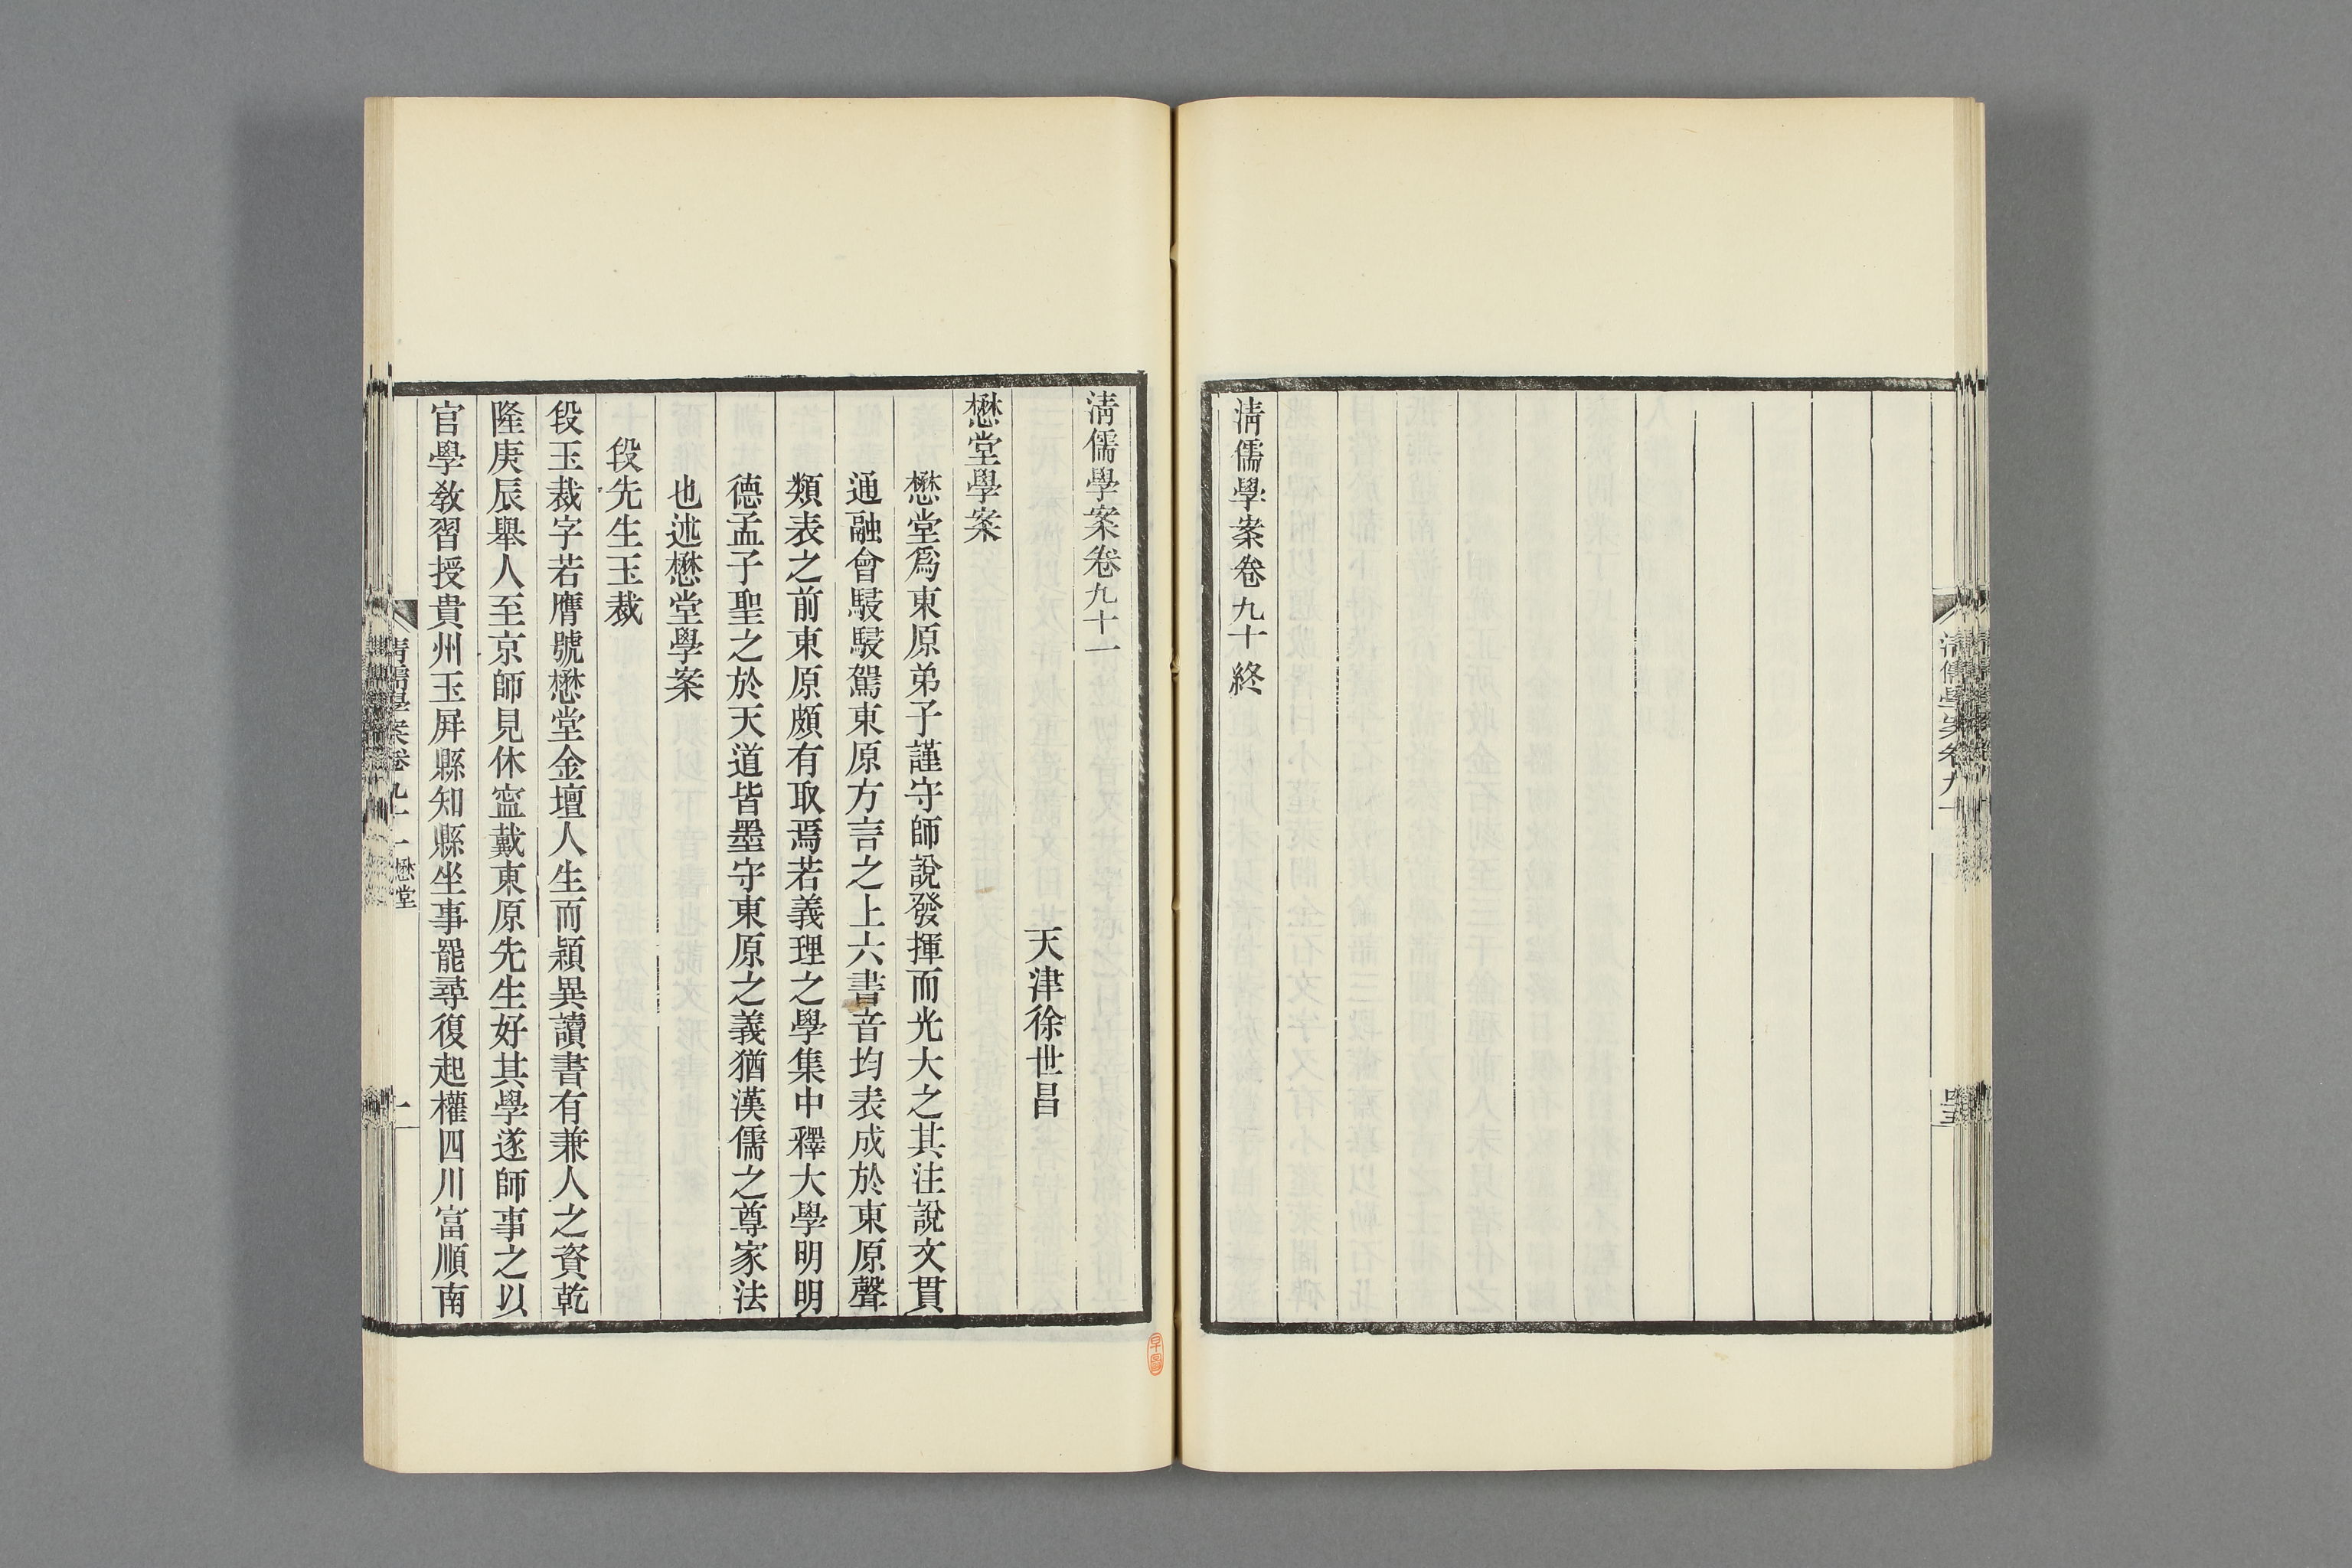 清儒學案卷九十終
清儒學案卷九十一
天津徐世昌
懋堂學案
懋堂爲東原弟子謹守師說發揮而光大之其注說文貫
通融會駸駸駕東原方言之上六書音均表成於東原聲
類表之前東原頗有取焉若義理之學集中釋大學明明
德孟子聖之於天道皆墨守東原之義猶漢儒之尊家法
也述懋堂學案
段先生玉裁
段玉裁字若膺號懋堂金壇人生而穎異讀書有兼人之資乾
隆庚辰舉人至京師見休寍戴東原先生好其學遂師事之以
官學敎習授貴州玉屛縣知縣坐事罷尋復起權四川富順南
清儒學案卷九十一 懋堂
一